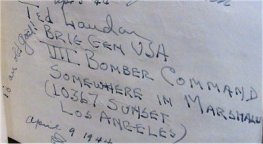 Ted Landon
BRIG GEN USA
VII. BOMBER COMMAND
SOMEWHERE IN MARSHALLS
(10367 SUNSET
LOS ANGELES)
April 9 1944
to an old goof!